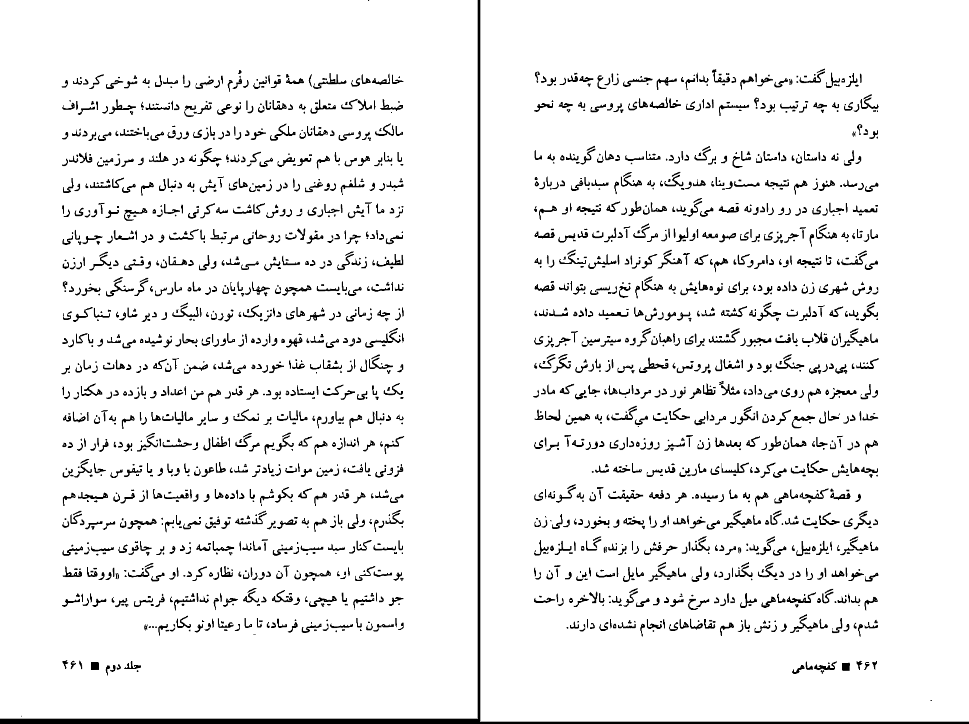 خالصه‌های سلطنتی) همهٔ قوانین رفُرم ارضی را مبدل به شوخی کردند و
ضبط املاک متعلق به دهقانان را نوعی تفریح دانستند؛ چطور اشراف
مالک پروسی دهقانان ملکی خود را در بازی ورق می‌باختند، می‌بردند و
یا بنابر هوس با هم تعویض می‌کردند؛ چگونه در هلند و سرزمین فلاندر
شبدر و شلغم روغنی را در زمین‌های آیش به دنبال هم می‌کاشتند، ولی
نزد ما آیش اجباری و روش کاشت سه‌کرتی اجازه هیچ نوآوری را
نمی‌داد؛ چرا در مقولات روحانی مرتبط با کشت و در اشعار چوپانی
لطیف، زندگی در ده ستایش می‌شد، ولی دهقان، وقتی دیگر ارزن
نداشت، می‌بایست همچون چهارپایان در ماه مارس، گرسنگی بخورد؟
از چه زمانی در شهرهای دانزیک، تورن، البیگ و دیر شاو، تنباکوی
انگلیسی دود می‌شد، قهوه وارده از ماورای بحار نوشیده می‌شد و با کارد
و چنگال از بشقاب غذا خورده می‌شد، ضمن آن‌که در دهات زمان بر
یک پا بی‌حرکت ایستاده بود. هر قدر هم من اعداد و بازده در هکتار را
به دنبال هم بیاورم، مالیات بر نمک و سایر مالیات‌ها را هم به آن اضافه
کنم، هر اندازه هم که بگویم مرگ اطفال وحشت‌انگیز بود، فرار از ده
فزونی یافت، زمین موات زیادتر شد، طاعون با وبا و یا تیفوس جایگزین
می‌شد، هر قدر هم که بکوشم با داده‌ها و واقعیت‌ها از قرن هیجدهم
بگذرم، ولی باز هم به تصویر گذشته توفیق نمی‌یابم: همچون سرسپردگان
بایست کنار سبد سیب‌زمینی آماندا چمباتمه زد و بر چاقوی سیب‌زمینی
پوست‌کنی او، همچون آن دوران، نظاره کرد. او می‌گفت: «اووقتا فقط
جو داشتیم یا هیچی، وقتکه دیگه جوام نداشتیم، فریتس پیر، سواراشو
واسمون با سیب‌زمینی فرساد، تا ما رعیتا اونو بکاریم...»
جلد دوم ■ ۴۶۱
ایلزه‌بیل گفت: «می‌خواهم دقیقاً بدانم، سهم جنسی زارع چه‌قدر بود؟
بیگاری به چه ترتیب بود؟ سیستم اداری خالصه‌های پروسی به چه نحو
بود؟»
ولی نه داستان، داستان شاخ و برگ دارد. متناسب دهان گوینده به ما
می‌رسد. هنوز هم نتیجه مست‌وینا، هدویگ، به هنگام سبدبافی دربارهٔ
تعمید اجباری در رو رادونه قصه می‌گوید، همان‌طور که نتیجه او هم،
مارتا، به هنگام آجرپزی برای صومعه اولیوا از مرگ آدلبرت قدیس قصه
می‌گفت، تا نتیجه او، دامروکا، هم، که آهنگر کونراد اسلیش‌تینگ را به
روش شهری زن داده بود، برای نوه‌هایش به هنگام نخ‌ریسی بتواند قصه
بگوید، که آدلبرت چگونه کشته شد، پومورش‌ها تعمید داده شدند،
ماهیگیران قلاب بافت مجبور گشتند برای راهبان گروه سیترسین آجرپزی
کنند، پی‌درپی جنگ بود و اشغال پروتس، قحطی پس از بارش تگرگ،
ولی معجزه هم روی می‌داد، مثلاً تظاهر نور در مرداب‌ها، جایی که مادر
خدا در حال جمع کردن انگور مردابی حکایت می‌گفت، به همین لحاظ
هم در آن‌جا، همان‌طور که بعدها زن آشپز روزه‌داری دورته‌آ برای
بچه‌هایش حکایت می‌کرد، کلیسای مارین قدیس ساخته شد.
و قصهٔ کفچه‌ماهی هم به ما رسیده. هر دفعه حقیقت آن به‌گونه‌ای
دیگری حکایت شد. گاه ماهیگیر می‌خواهد او را پخته و بخورد، ولی زن
ماهیگیر، ایلزه‌بیل، می‌گوید: «مرد، بگذار حرفش را بزند» گاه ایلزه‌بیل
می‌خواهد او را در دیگ بگذارد، ولی ماهیگیر مایل است این و آن را
هم بداند. گاه کفچه‌ماهی میل دارد سرخ شود و می‌گوید: بالاخره راحت
شدم، ولی ماهیگیر و زنش باز هم تقاضاهای انجام نشده‌ای دارند.
۴۶۲ ■ کفچه‌ماهی